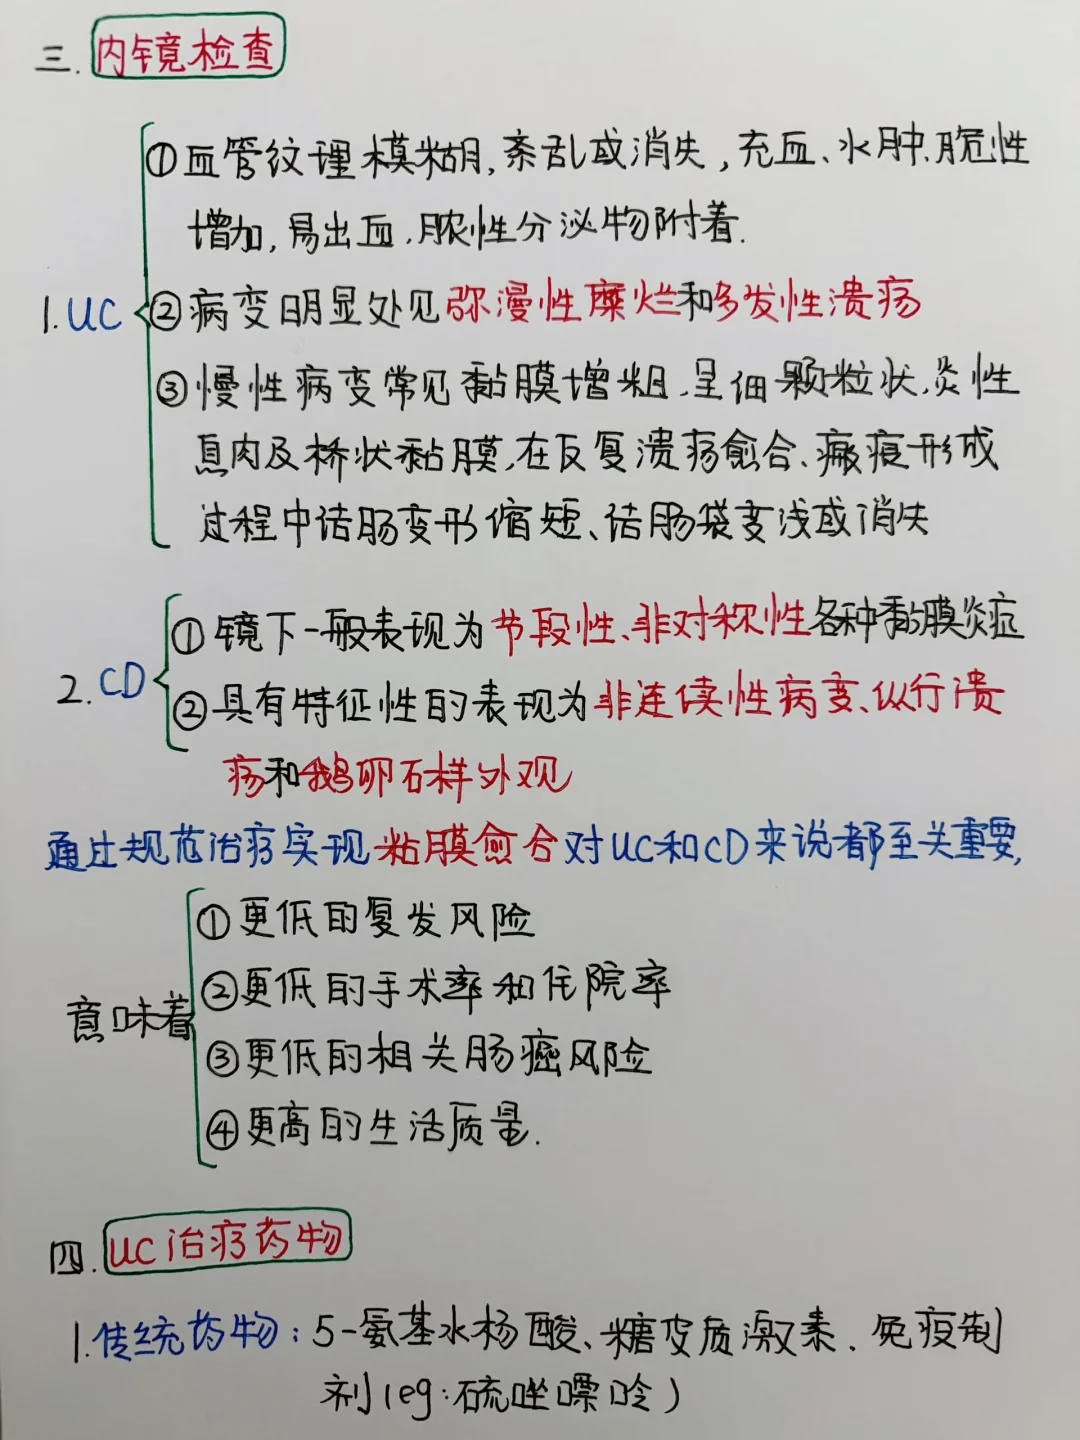 三. 内镜检查
①血管纹理模糊,紊乱或消失,充血、水肿、脆性
增加,易出血,脓性分泌物附着.
1.UC ②病变明显处见弥漫性糜烂和多发性溃疡
③慢性病变常见黏膜增粗,呈细颗粒状,炎性
息肉及桥状黏膜,在反复溃疡愈合、瘢痕形成
过程中结肠变形缩短、结肠袋变浅或消失
①镜下一般表现为节段性、非对称性各种黏膜炎症
2.CD ②具有特征性的表现为非连续性病变、纵行溃
疡和鹅卵石样外观
通过规范治疗实现粘膜愈合对UC和CD来说都至关重要,
①更低的复发风险
②更低的手术率和住院率
意味着
③更低的相关肠癌风险
④更高的生活质量.
四. UC治疗药物
1.传统药物:5-氨基水杨酸、糖皮质激素、免疫制
剂(eg:硫唑嘌呤)